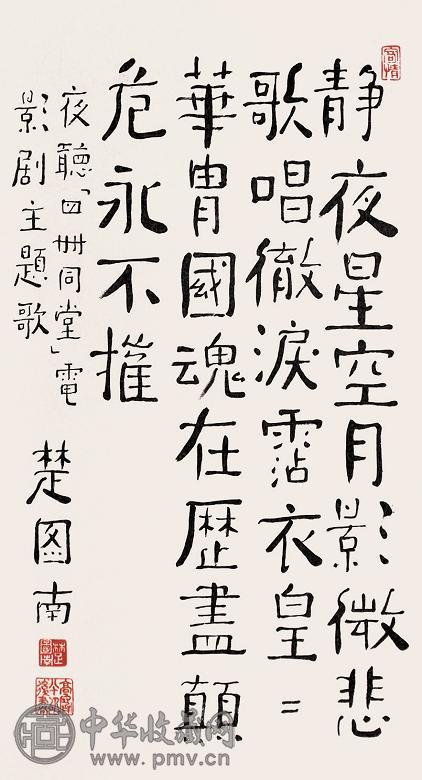 静夜星空月影微悲
歌唱徹淚霑衣皇〻
華胄國魂在歷盡顛
危永不摧
夜聽「四世同堂」電
影劇主題歌
楚图南
中华收藏网
www.pmv.cn